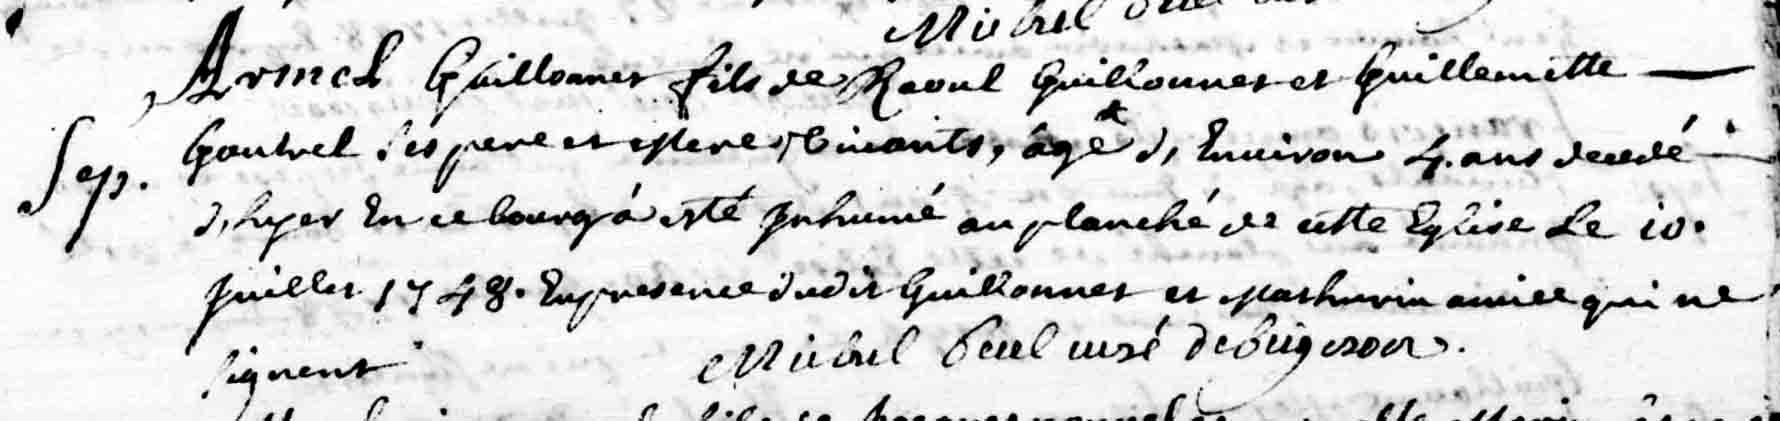 Michel
Armel Guillonnet fils de Raoul Guillonnet et Guillemette
Sep. Gautrel ses pere et Mere Vivants, âgé d'Environ 4. ans decedé
d'hyer En ce bourg á esté Inhumé au planché de cette Eglise Le 10.
Juillet 1748. En presence dudit Guillonnet et Mathurin amice qui ne
signent Michel curé de